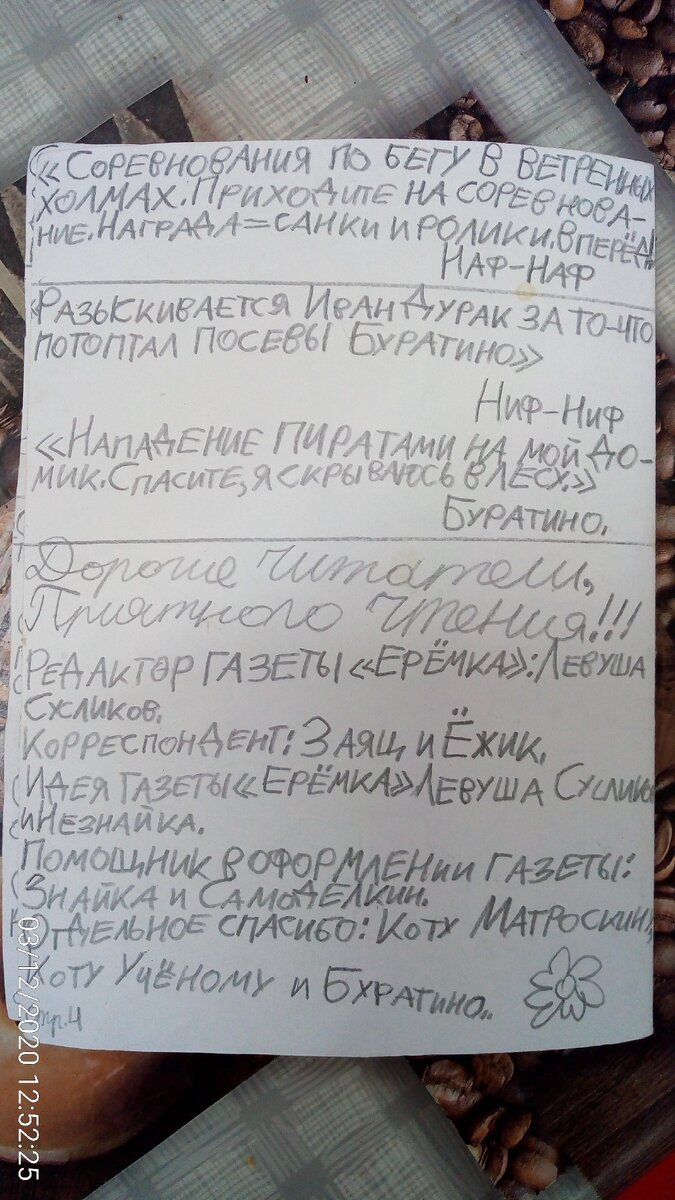 «СОРЕВНОВАНИЯ ПО БЕГУ В ВЕТРЕННЫХ
ХОЛМАХ. ПРИХОДИТЕ НА СОРЕВНОВА-
НИЕ. НАГРАДА = САНКИ И РОЛИКИ. ВПЕРЁД!
НАФ-НАФ
«РАЗЫСКИВАЕТСЯ ИВАН ДУРАК ЗА ТО-ЧТО
ПОТОПТАЛ ПОСЕВЫ БУРАТИНО»
НИФ-НИФ
«НАПАДЕНИЕ ПИРАТАМИ НА МОЙ ДО-
МИК. СПАСИТЕ, Я СКРЫВАЮСЬ В ЛЕСУ.»
БУРАТИНО.
Дорогие читатели,
Приятного чтения!!!
РЕДАКТОР ГАЗЕТЫ «ЕРЁМКА»: ЛЕВУША
СУСЛИКОВ.
КОРРЕСПОНДЕНТ: ЗАЯЦ И ЁЖИК.
ИДЕЯ ГАЗЕТЫ «ЕРЁМКА» ЛЕВУША СУСЛИКОВ
И НЕЗНАЙКА.
ПОМОЩНИК В ОФОРМЛЕНИИ ГАЗЕТЫ:
ЗНАЙКА И САМОДЕЛКИН.
ОТДЕЛЬНОЕ СПАСИБО: КОТУ МАТРОСКИНУ,
КОТУ УЧЁНОМУ И БУРАТИНО..
стр. 4
03/12/2020 12:52:25